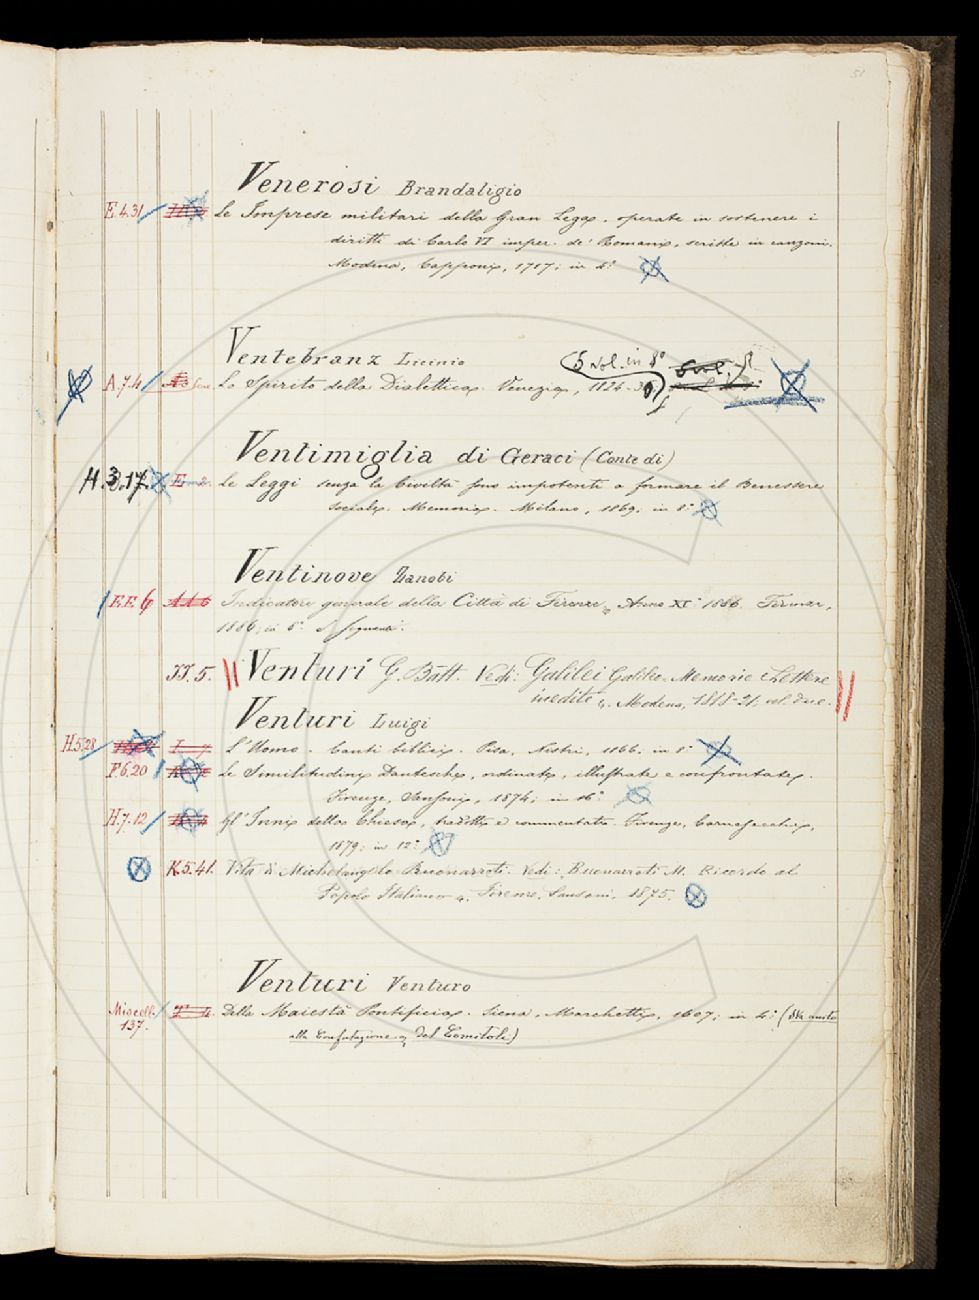 51
Venerosi Brandaligio
E.4.31 Le Imprese militari della Gran Lega, operate in sostenere i
diritti di Carlo VI imper. de' Romani, scritte in canzoni.
Modena, Capponi, 1717; in 4.º
Ventebranz Licinio
(5 vol. in 8º
A.7.4 Lo Spirito della Dialettica. Venezia, 1824-30
Ventimiglia di Geraci (Conte di)
H.3.17. E 2. Le Leggi senza la Civiltà sono impotenti a formare il Benessere
sociale. Memoria. Milano, 1869. in 8.º
Ventinove Zanobi
EE 6 A A 6 Indicatore generale della Città di Firenze, Anno XI. 1886. Firenze,
1886, in 8.º e seguenti.
JJ.5. Venturi G. Batt. Vedi: Galilei Galileo. Memorie e Lettere
inedite. Modena, 1818-21; vol. due.
Venturi Luigi
H.5.28 L'Uomo. Canti biblici. Pisa, Nistri, 1866. in 8.º
F.6.20 Le Similitudini Dantesche, ordinate, illustrate e confrontate.
Firenze, Sansoni, 1874; in 16.º
H.7.12 Gl'Inni della Chiesa, tradotti e commentati. Firenze, Carnesecchi,
1879; in 12.º
K.5.41. Vita di Michelangelo Buonarroti. Vedi: Buonarroti M. Ricordo al
Popolo Italiano. Firenze, Sansoni, 1875.
Venturi Venturo
Miscell. Della Maiestà Pontificia. Siena, Marchetti, 1607; in 4.º (Sta unito
137.
alla Confutazione del Comitoli)